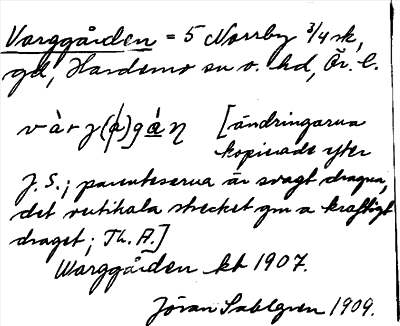 Varggården = 5 Norrby 3/4 sk,
gd, Hardemo sn o. hd, Ör. l.
[ändringarna
kopierade efter
J.S.; parenteserna är svagt dragna,
det vertikala strecket gm a kraftigt
draget; Th. A.]
Warggården kb 1907.
Jöran Sahlgren 1909.